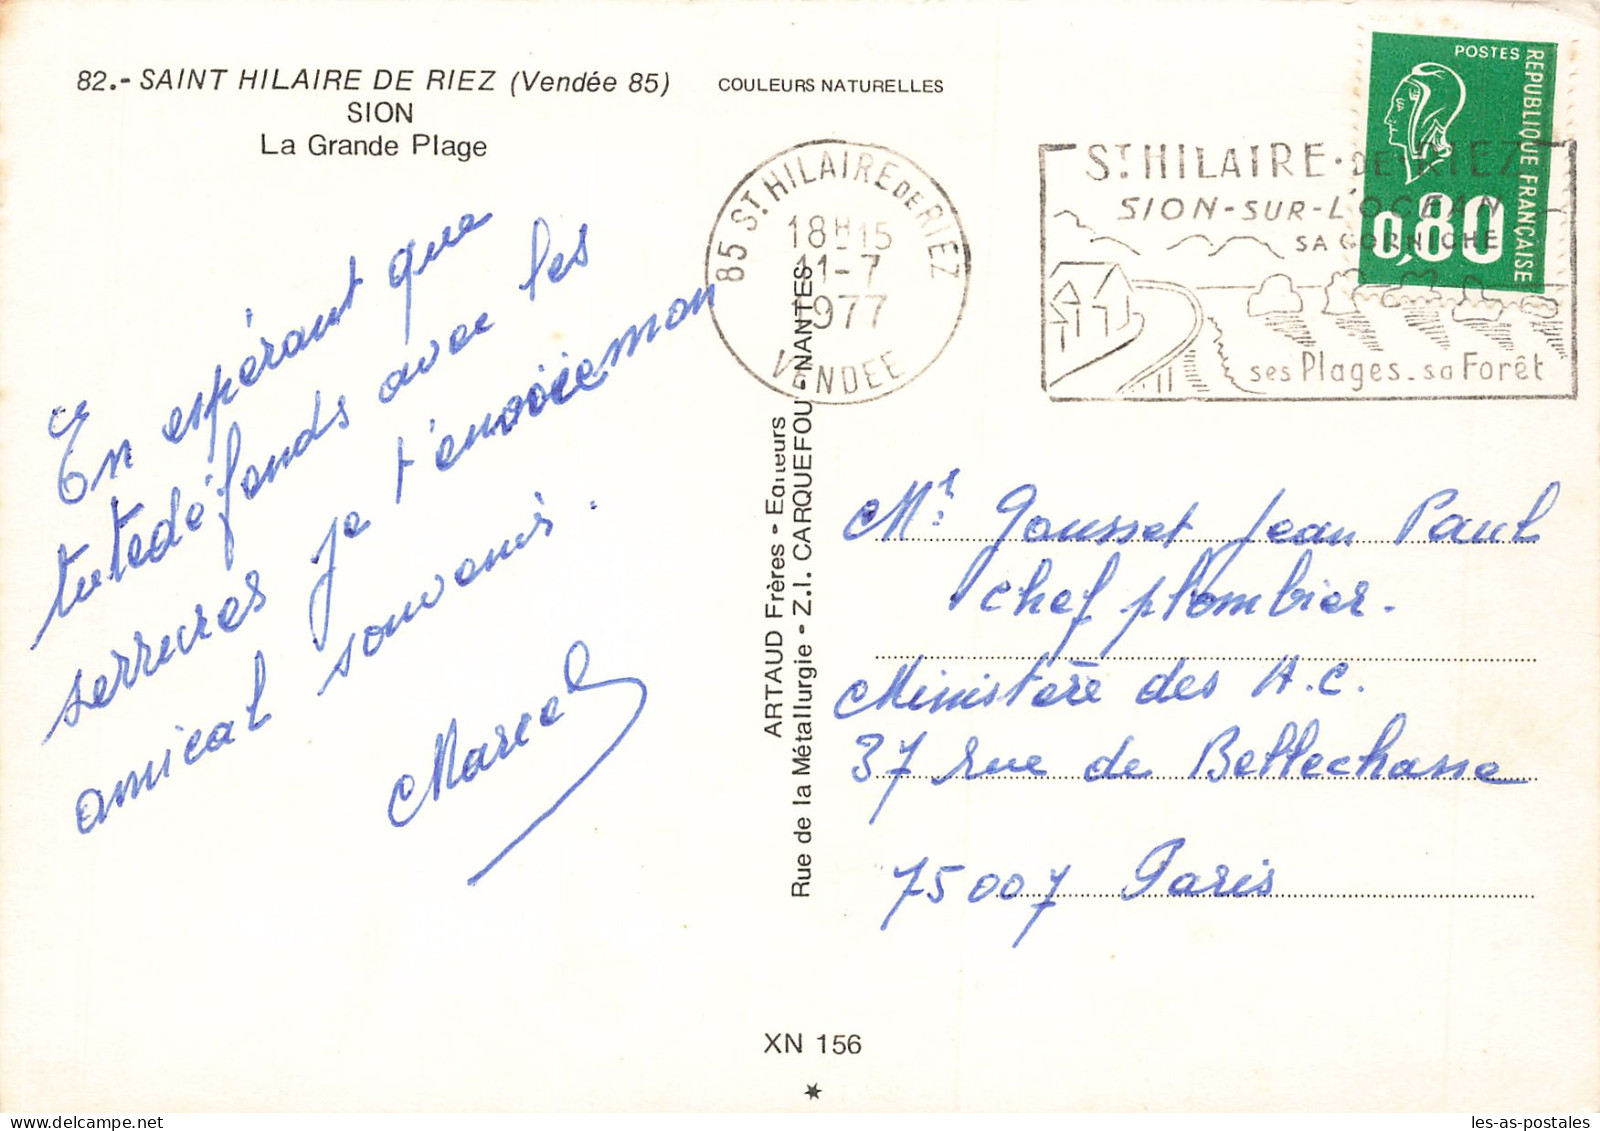 82.- SAINT HILAIRE DE RIEZ (Vendée 85)
SION
La Grande Plage
COULEURS NATURELLES
En espérant que
tutedéfends avec les
serrures je t'envoiemon
amical souvenir.
Marcel
85 ST HILAIRE DE RIEZ
18H15
11-7
1977
VENDEE
ST HILAIRE·DE·RIEZ
SION-SUR-L'OCEAN
SA CORNICHE
ses Plages_sa Forêt
POSTES
REPUBLIQUE FRANÇAISE
0,80
ARTAUD Frères - Editeurs
Rue de la Métallurgie - Z.I. CARQUEFOU - NANTES
Mr: Gousset Jean Paul
chef plombier.
Ministère des A.C.
37 rue de Bellechasse
75007 Paris
XN 156
les-as-postales